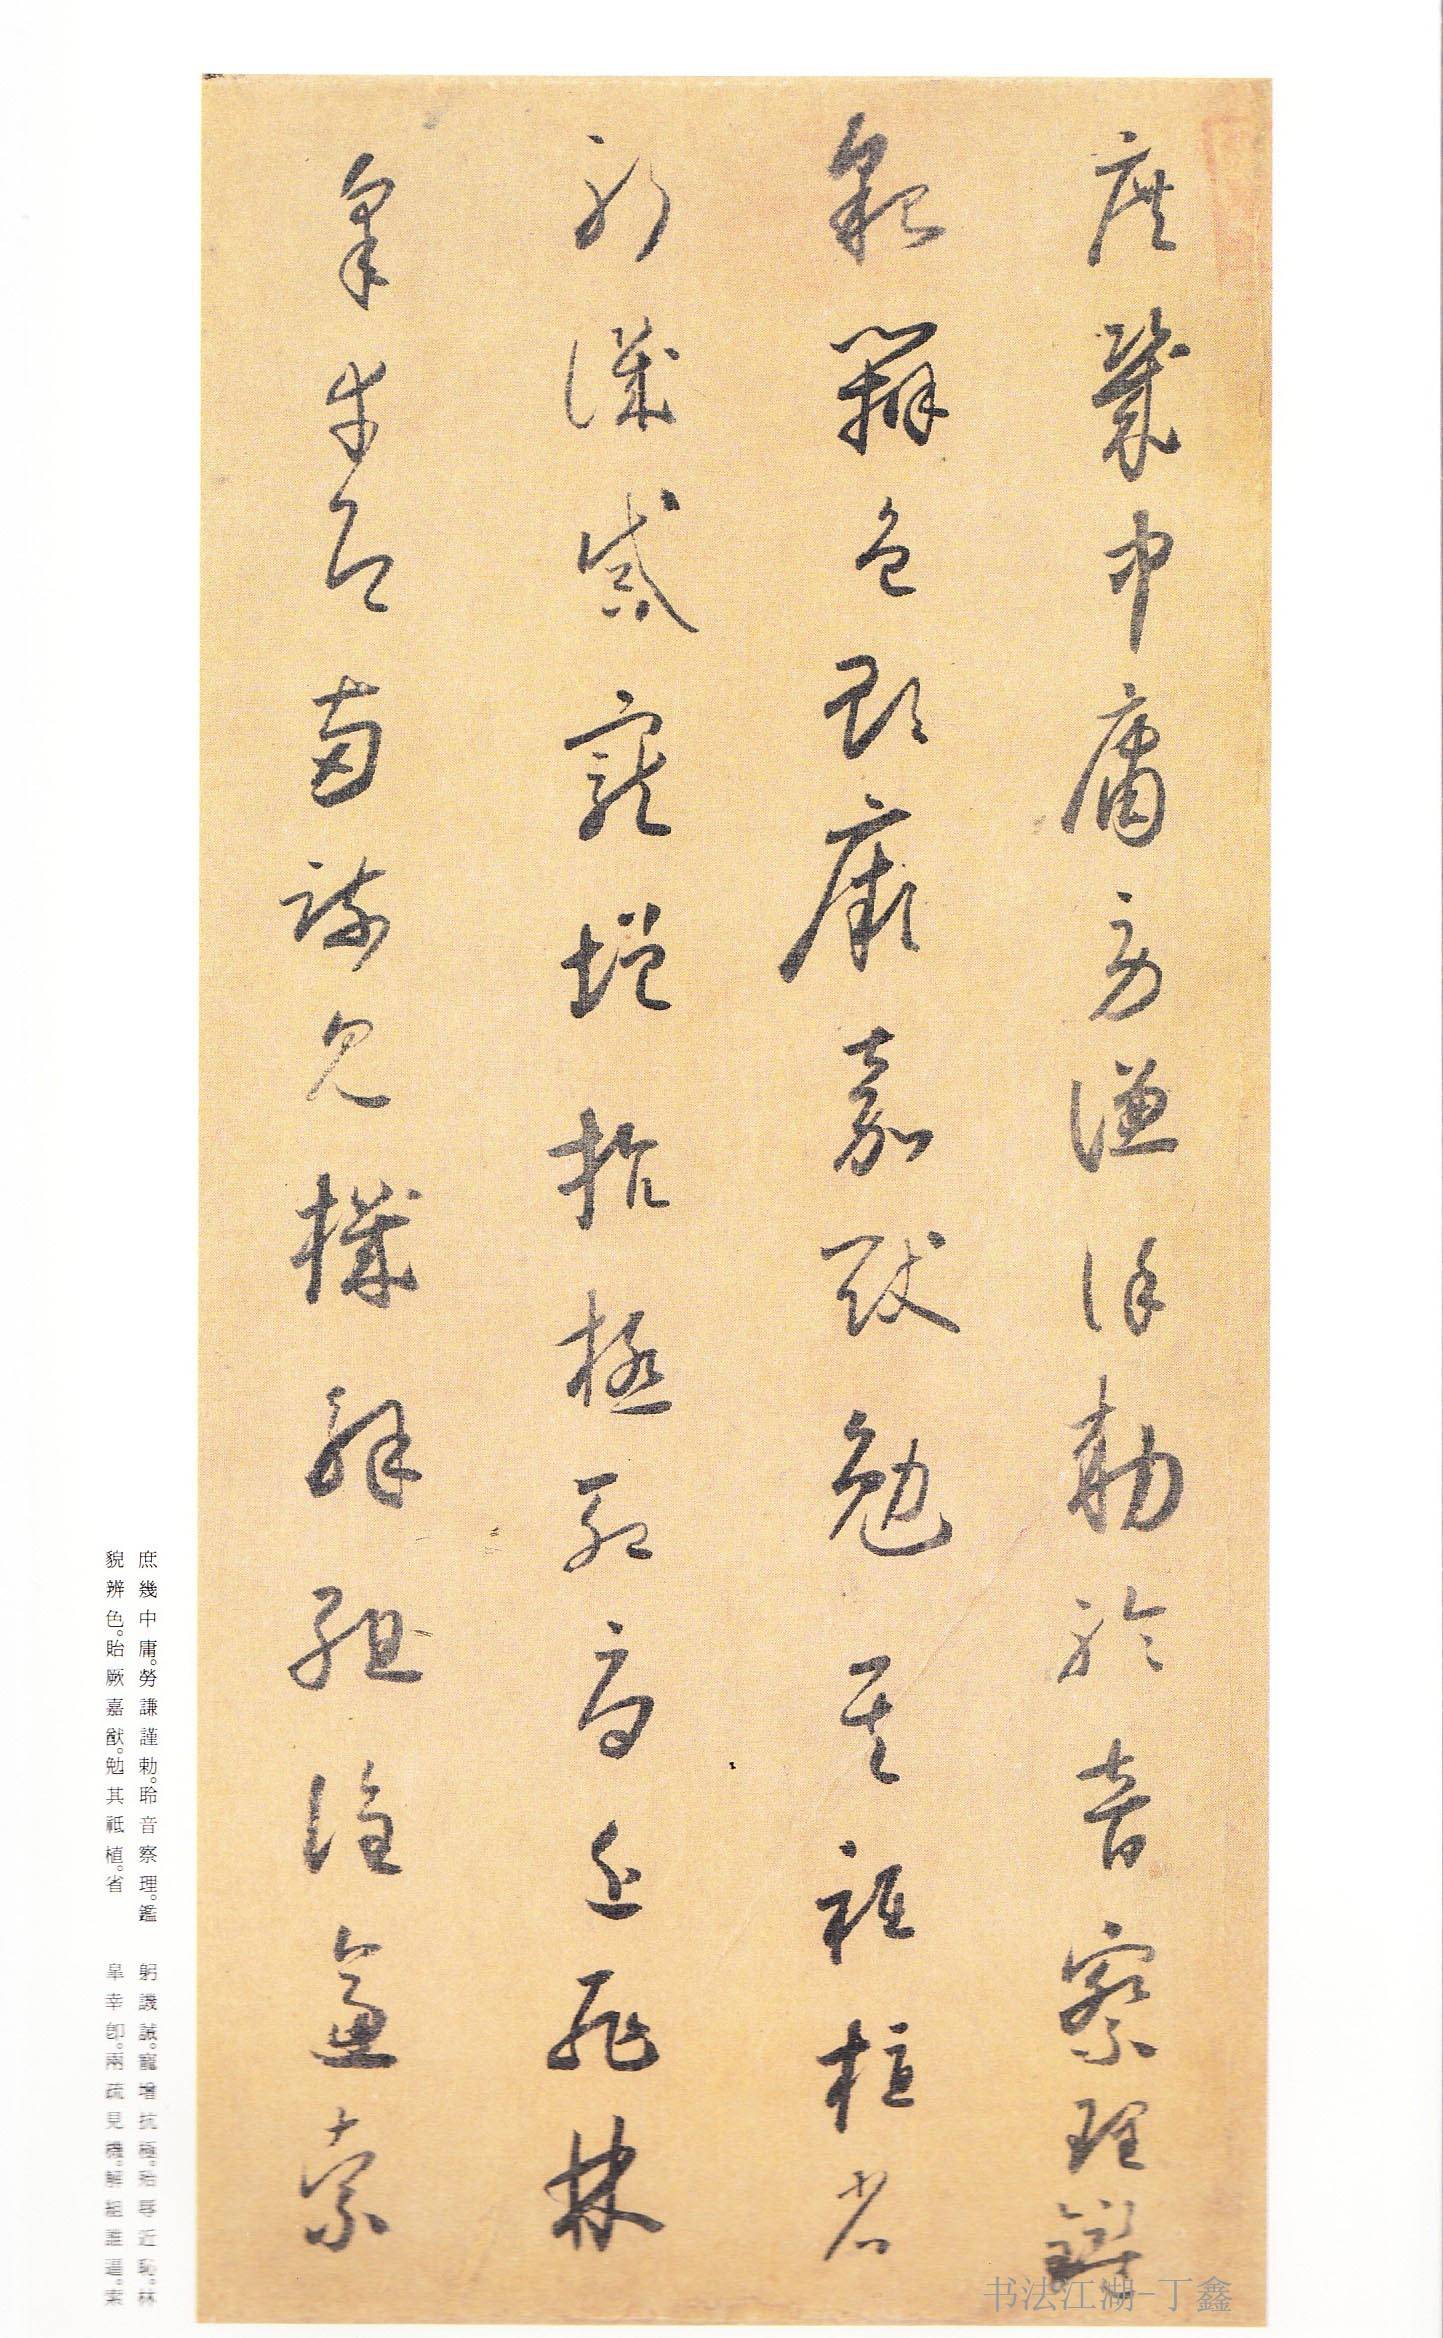 庶幾中庸勞謙謹勅聆音察理鑑
貌辨色貽厥嘉猷勉其祗植省
躬譏誡寵增抗極殆辱近恥林
皋幸即兩疏見機解組誰逼索
庶幾中庸。勞謙謹勅。聆音察理。鑑
貌辨色。貽厥嘉猷。勉其祗植。省
躬譏誡。寵增抗極。殆辱近恥。林
皐幸卽。兩疏見機。解組誰逼。索
书法江湖-丁鑫